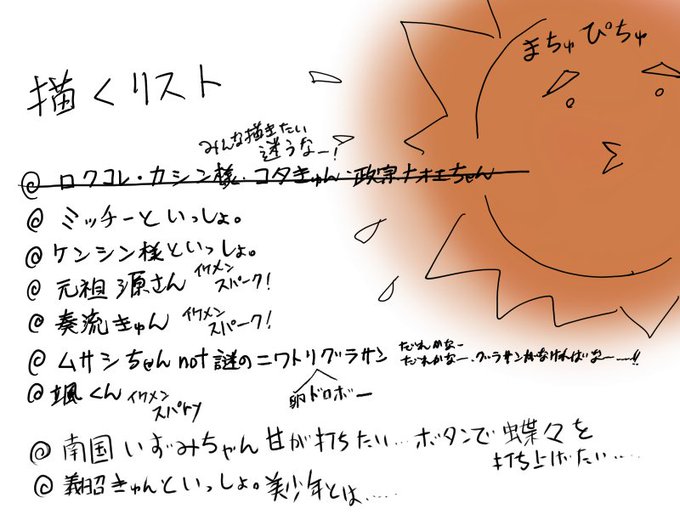 まちゅぴちゅ
描くリスト
みんな描きたい
迷うなー!
@ ロクコレ・カシン様・コタきゅん・政宗
@ ミッチーといっしょ。
@ ケンシン様といっしょ。
@ 元祖源さん イケメン
スパーク!
@ 奏流きゅん イケメン
スパーク!
@ ムサシちゃん not 謎のニワトリグラサン
だれかなー
だれかなー、グラサン
卵ドロボー
@ 颯くん イケメン
@ 南国いずみちゃん 甘が打ちたい… ボタンで蝶々を
打ち上げたい……
@ 義昭きゅんといっしょ。美少年とは……